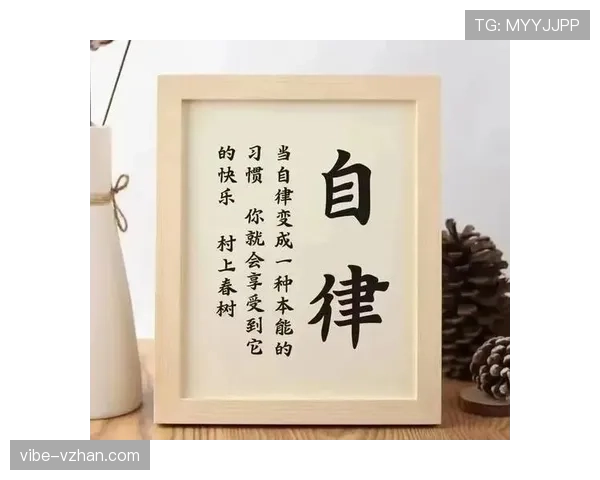 TG: MYYJJPP
自律
当自律变成一种本能的
习惯 你就会享受到它
的快乐 村上春树
vibe-vzhan.com